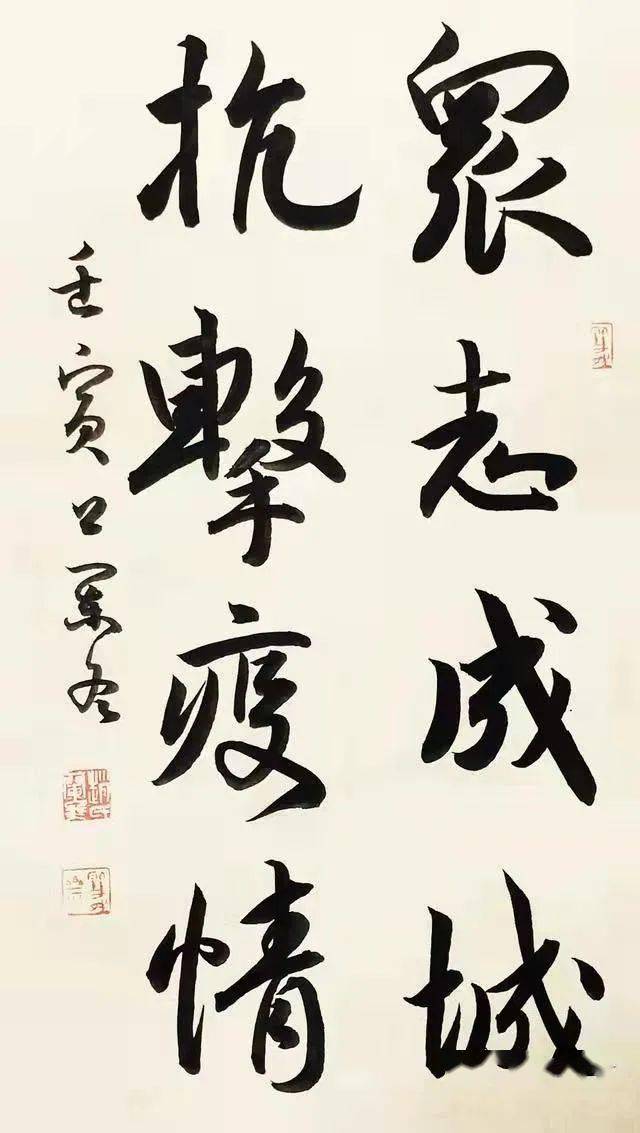 眾志成城
抗擊疫情
壬寅